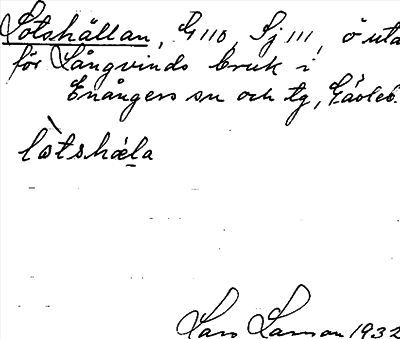 Lotshällan, G 110, Sj 111, ö uta
för Långvinds bruk i
Enångers sn och tg, Gävleb.
lòtshä́la
Lars Larson 1932